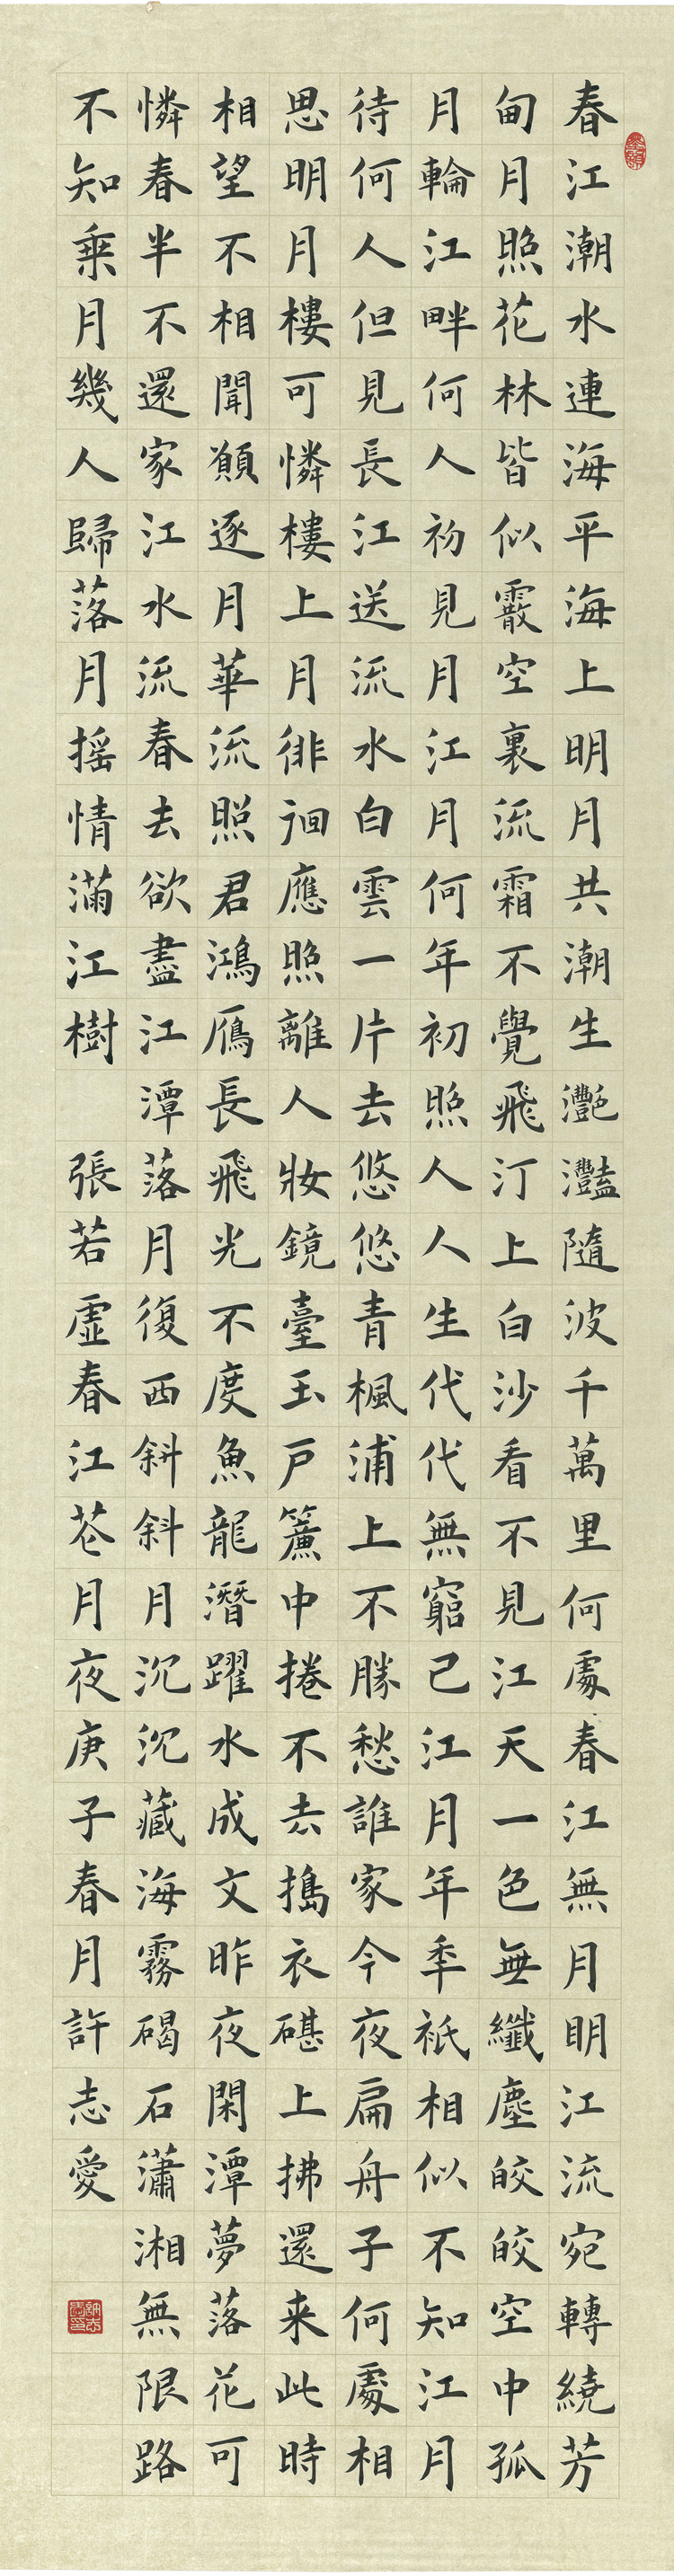 春江潮水連海平海上明月共潮生灧灩隨波千萬里何處春江無月明江流宛轉繞芳
甸月照花林皆似霰空裏流霜不覺飛汀上白沙看不見江天一色無纖塵皎皎空中孤
月輪江畔何人初見月江月何年初照人人生代代無窮已江月年秊祗相似不知江月
待何人但見長江送流水白雲一片去悠悠青楓浦上不勝愁誰家今夜扁舟子何處相
思明月樓可憐樓上月徘徊應照離人妝鏡臺玉戶簾中捲不去搗衣碪上拂還来此時
相望不相聞願逐月華流照君鴻鴈長飛光不度魚龍潛躍水成文昨夜閑潭夢落花可
憐春半不還家江水流春去欲盡江潭落月復西斜斜月沉沉藏海霧碣石瀟湘無限路
不知乘月幾人歸落月摇情滿江樹 張若虛春江花月夜庚子春月許志愛